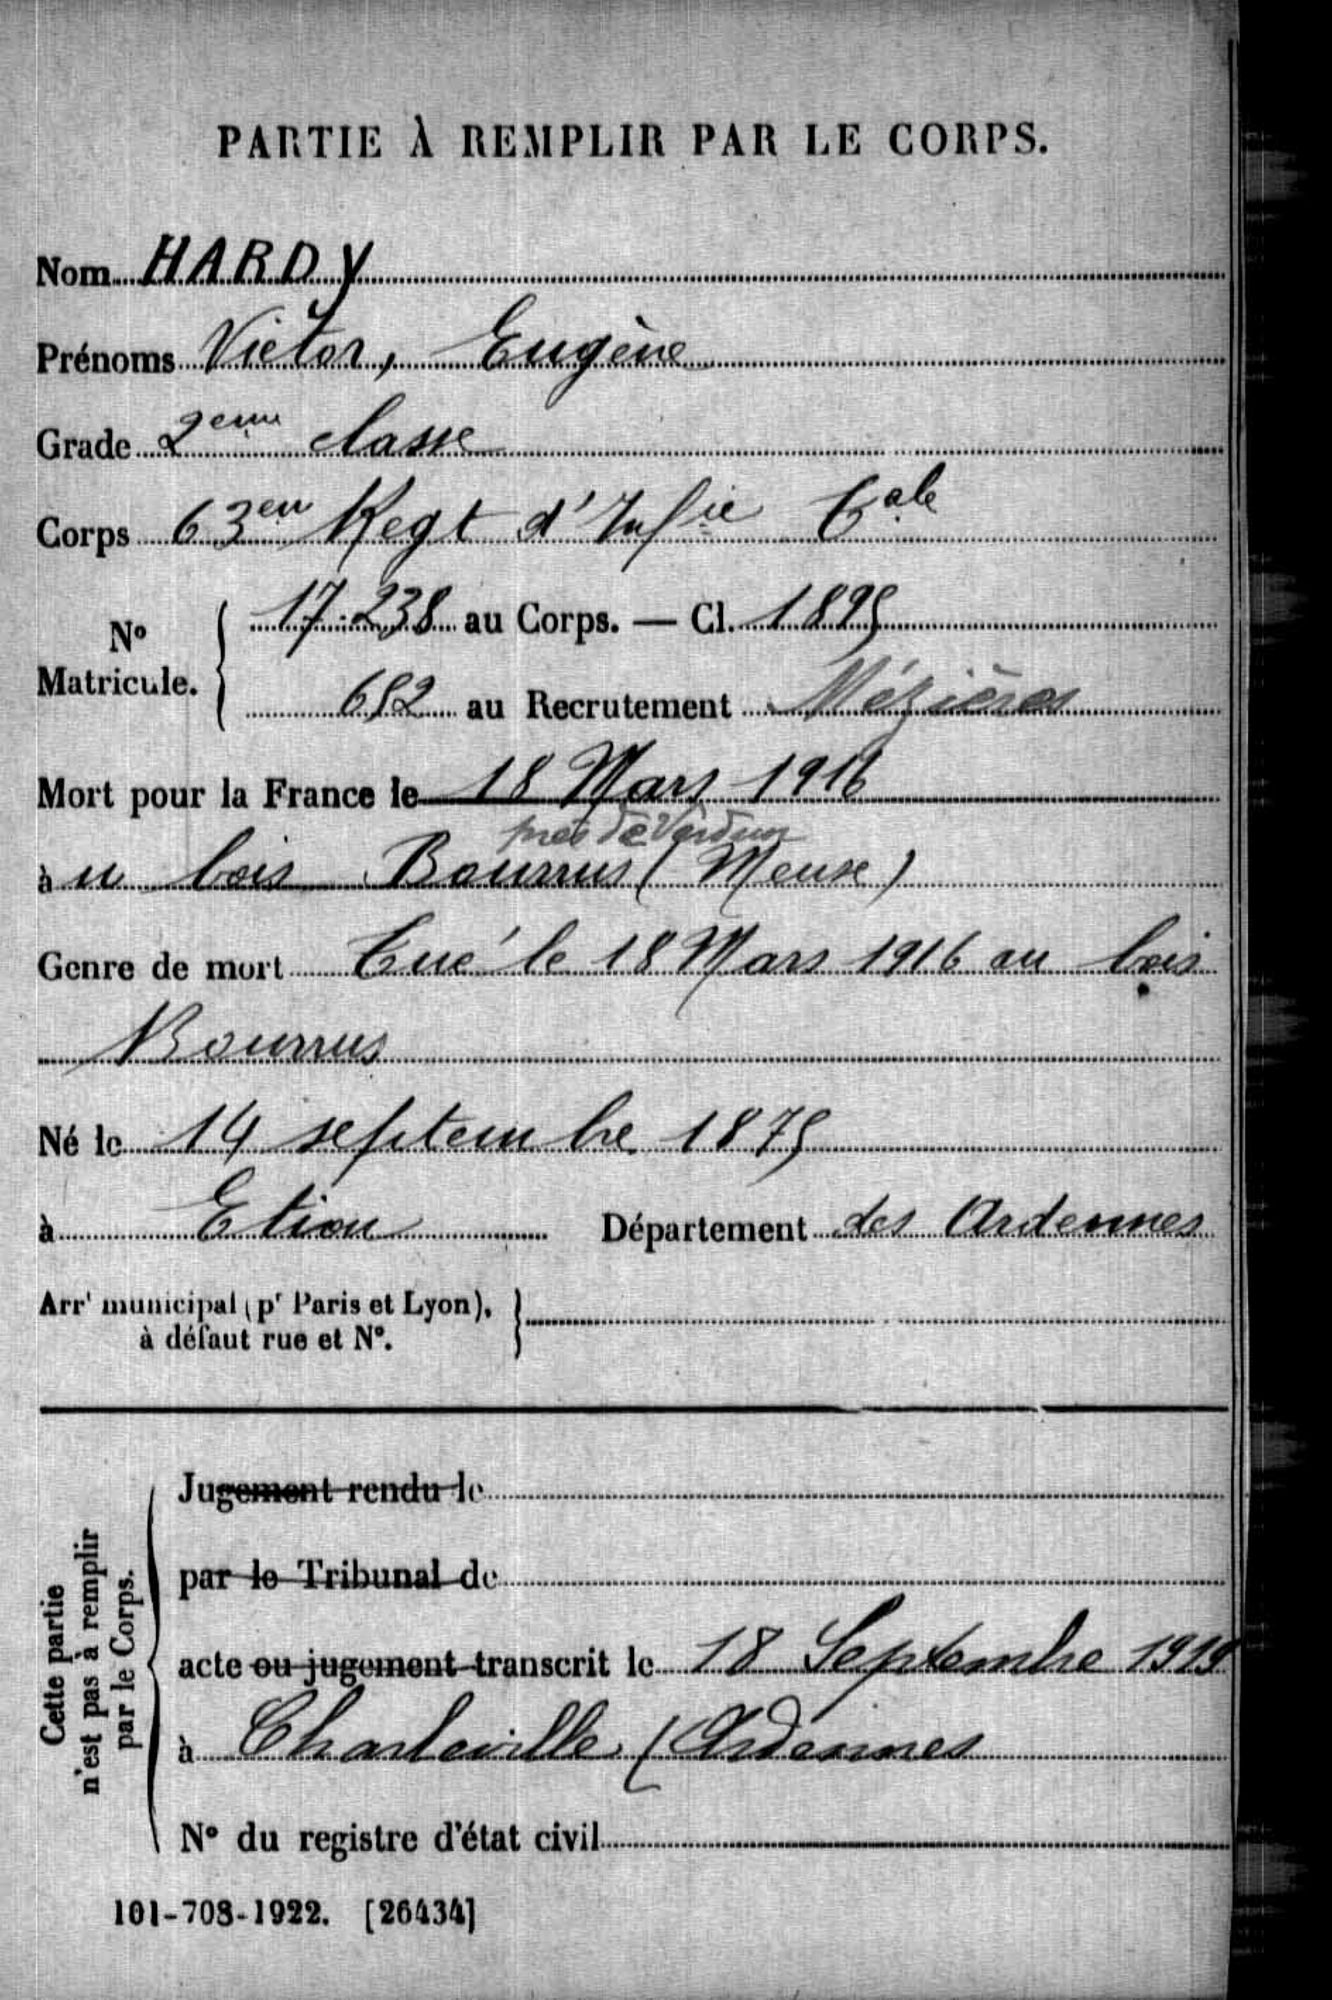 PARTIE À REMPLIR PAR LE CORPS.
Nom HARDY
Prénoms Victor, Eugène
Grade 2eme classe
Corps 63em Regt d'Infie Cale
No Matricule. { 17.238 au Corps. — Cl. 1895
692 au Recrutement Mézières
Mort pour la France le 18 Mars 1916
près de Verdun
à u bois Bourrus (Meuse)
Genre de mort Tué le 18 Mars 1916 au bois
Bourrus
Né le 14 septembre 1875
à Etion Département des Ardennes
Arrt municipal (pr Paris et Lyon),
à défaut rue et No.
Cette partie
n'est pas à remplir
par le Corps.
Jugement rendu le
par le Tribunal de
acte ou jugement transcrit le 18 Septembre 1919
à Charleville (Ardennes
No du registre d'état civil
101-708-1922. [26434]